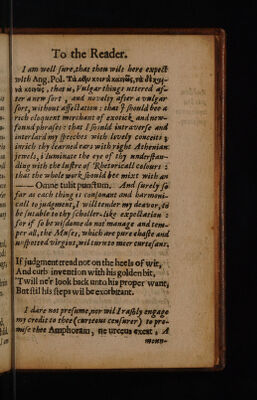 To the Reader.
I am well sure, that thou wilt here expect
with Ang. Pol. Τὰ
that is, Vulgar things uttered af-
ter a new sort, and novelty after a vulgar
sort, without affectation: that I should bee a
rich eloquent merchant of exotick, and new-
found phrases: that I should interweave and
interlard my speeches with lovely conceits;
inrich thy learned ears with right Athenian
jewels, illuminate the eye of thy understan-
ding with the lustre of Rhetoricall colours:
that the whole work should bee mixt with an
—— Omne tulit punctum. And surely so
far as each thing is consonant and harmoni-
call to judgment, I will tender my devoir, to
be sutable to thy scholler-like expectation:
for if so be wisdome do not manage and tem-
per all, the Muses, which are pure chaste and
unspotted virgins, wil turn to meer curtesans.
If judgement tread not on the heels of wit,
And curb invention with his golden bit,
'T will ne'r look back unto his proper want,
But stil his steps wil be exorbitant.
I dare not presume, nor wil I rashly engage
my credit to thee (curteous censurer) to pro-
mise thee Amphoram, ne urceus exeat, A